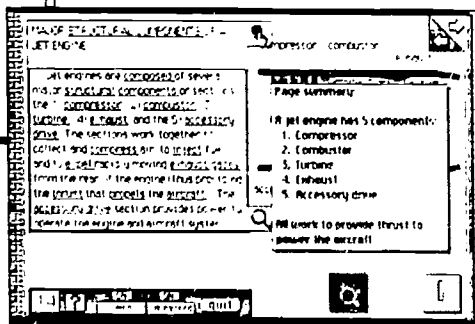 MAJOR STRUCTURAL COMPONENTS OF A
JET ENGINE
compressor combustor
Jet engines are composed of several
major structural components or sections
the 1. compressor combustor
turbine exhaust and the 5) accessory
drive The sections work together to
collect and compress air to inject fuel
and rapidly moving exhaust gasses
from the rear of the engine thus providing
the thrust that propels the aircraft. The
accessory drive section provides power to
operate the engine and aircraft system
Page summary:
A jet engine has 5 components:
1. Compressor
2. Combustor
3. Turbine
4. Exhaust
5. Accessory drive
All work to provide thrust to
power the aircraft
quit